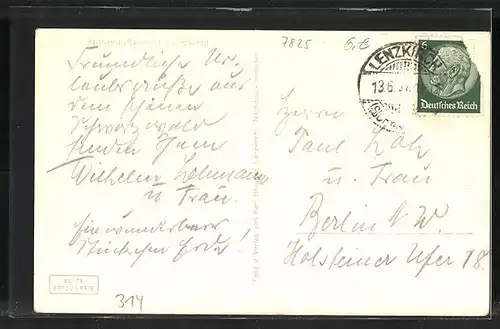 Freundliche Ur-
laubsgrüße aus
dem schönen
Schwarzwald
senden Ihnen
Wilhelm Lehmann
u. Frau.
Ein wunderbares
Stückchen Erde!
314
7825
LENZKIRCH
13.6.
Deutsches Reich
Herrn
Paul
u. Frau
Berlin N.W.
Holsteiner Ufer 18.